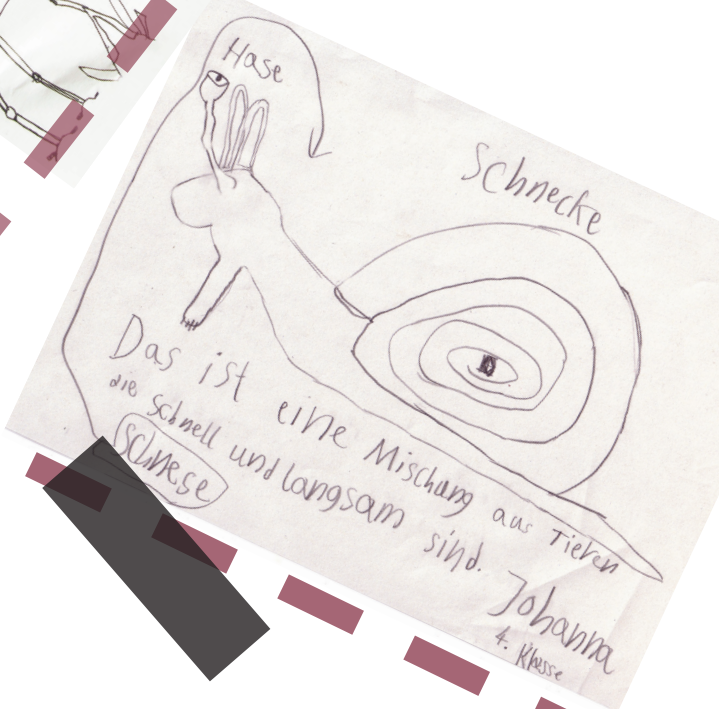 Hase
Schnecke
Das ist eine Mischung aus Tieren
die Schnell und langsam sind.
Schnese
Johanna
4. Klasse